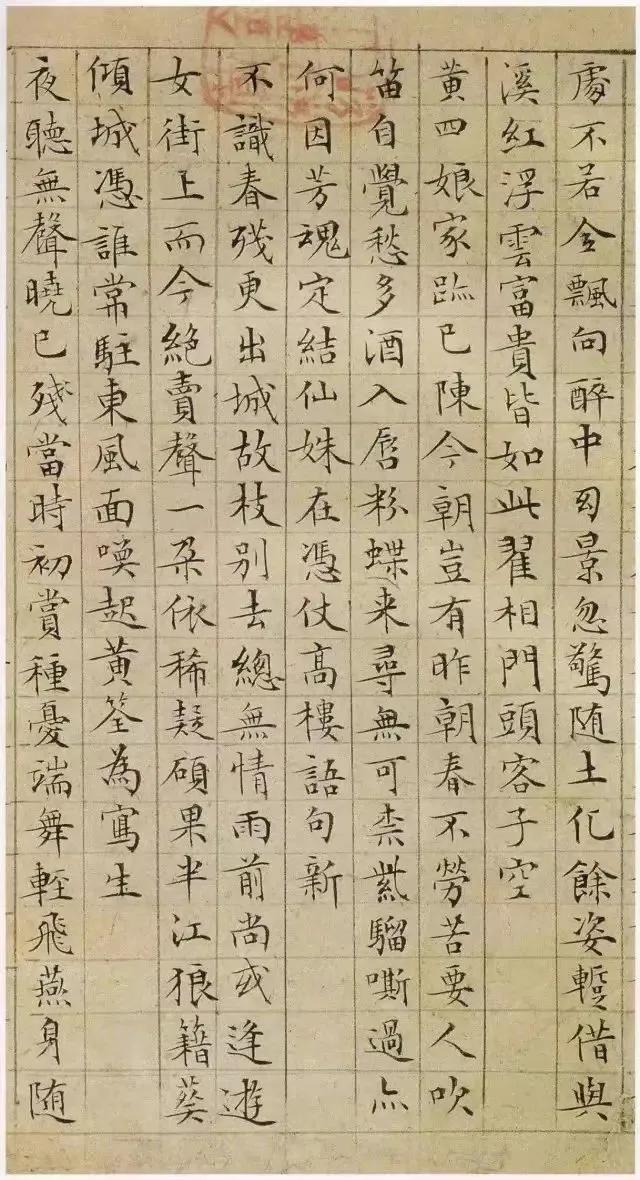 處不若全飄向醉中幻景忽驚随土化餘姿蹔借與
溪紅浮雲富貴皆如此翟相門頭客子空
黄四娘家跡已陳今朝豈有昨朝春不勞苦要人吹
笛自覺愁多酒入唇粉蝶来尋無可柰紫騮嘶過亦
何因芳魂定結仙姝在憑仗高樓語句新
不識春殘更出城故枝別去總無情雨前尚或逢遊
女街上而今絕賣聲一朶依稀疑碩果半江狼籍葵
傾城憑誰常駐東風面喚起黃筌為寫生
夜聽無聲曉已殘當時初賞種憂端舞輕飛燕身随